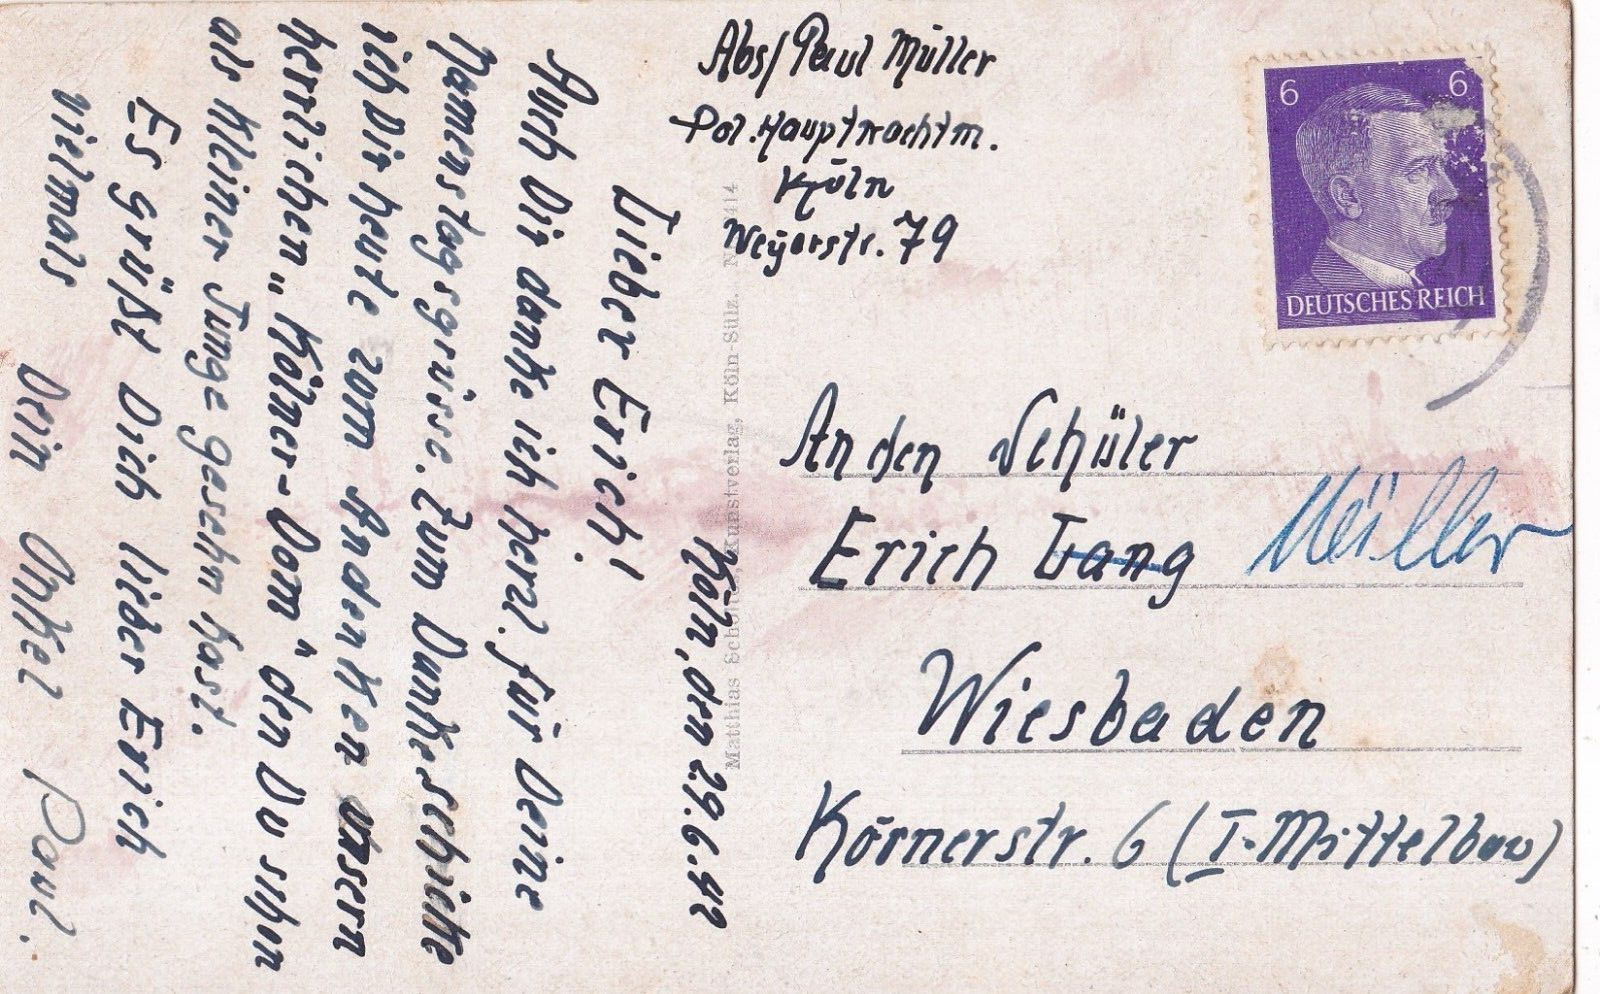 Abs/ Paul Müller
Pol. Hauptwachtm.
Köln
Weyerstr. 79
6 6
DEUTSCHES REICH
21
An den Schüler
Erich Lang Müller
Wiesbaden
Körnerstr. 6 (I-Mittelbau)
Köln, den 29.6.42
Lieber Erich!
Auch Dir danke ich herzl. für Deine
Namenstagsgrüsse. Zum Danke schicke
ich Dir heute zum Andenken unsern
herrlichen „Kölner-Dom" den Du schon
als kleiner Junge gesehn hast.
Es grüßt Dich lieber Erich
vielmals
Dein Onkel Paul.
Matthias Kunstverlag, Köln-Sülz.